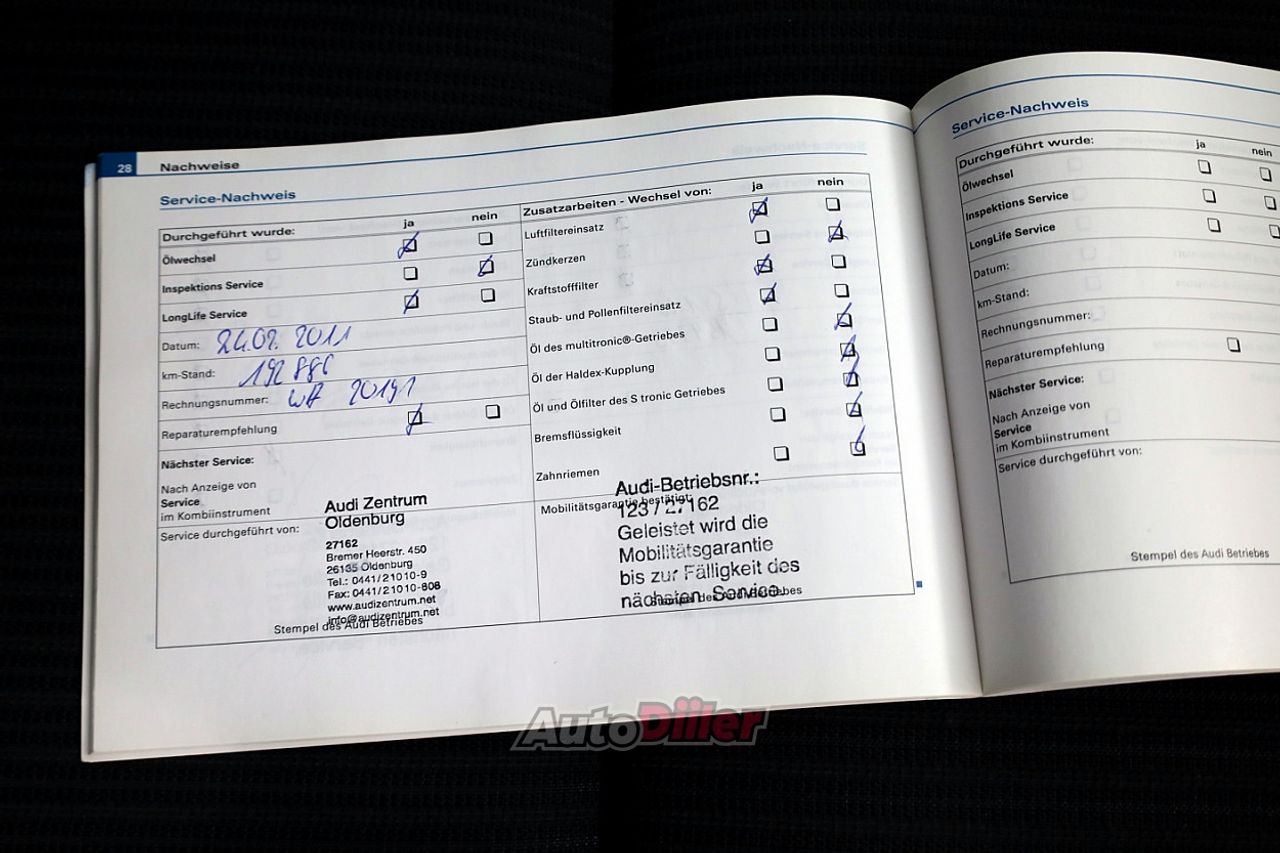 28 Nachweise
Service-Nachweis
Durchgeführt wurde: ja nein
Ölwechsel
Inspektions Service
LongLife Service
Datum: 24.02. 2011
km-Stand: 192 886
Rechnungsnummer: WA 20191
Reparaturempfehlung
Nächster Service:
Nach Anzeige von
Service
im Kombiinstrument
Service durchgeführt von:
Audi Zentrum
Oldenburg
27162
Bremer Heerstr. 450
26135 Oldenburg
Tel.: 0441/21010-9
Fax: 0441/21010-808
www.audizentrum.net
info@audizentrum.net
Stempel des Audi Betriebes
Zusatzarbeiten - Wechsel von: ja nein
Luftfiltereinsatz
Zündkerzen
Kraftstofffilter
Staub- und Pollenfiltereinsatz
Öl des multitronic®-Getriebes
Öl der Haldex-Kupplung
Öl und Ölfilter des S tronic Getriebes
Bremsflüssigkeit
Zahnriemen
Mobilitätsgarantie bestätigt:
Audi-Betriebsnr.:
123 / 27162
Geleistet wird die
Mobilitätsgarantie
bis zur Fälligkeit des
nächsten Service.
Stempel des Audi Betriebes
Service-Nachweis
Durchgeführt wurde: ja nein
Ölwechsel
Inspektions Service
LongLife Service
Datum:
km-Stand:
Rechnungsnummer:
Reparaturempfehlung
Nächster Service:
Nach Anzeige von
Service
im Kombiinstrument
Service durchgeführt von:
Stempel des Audi Betriebes
AutoDiiler